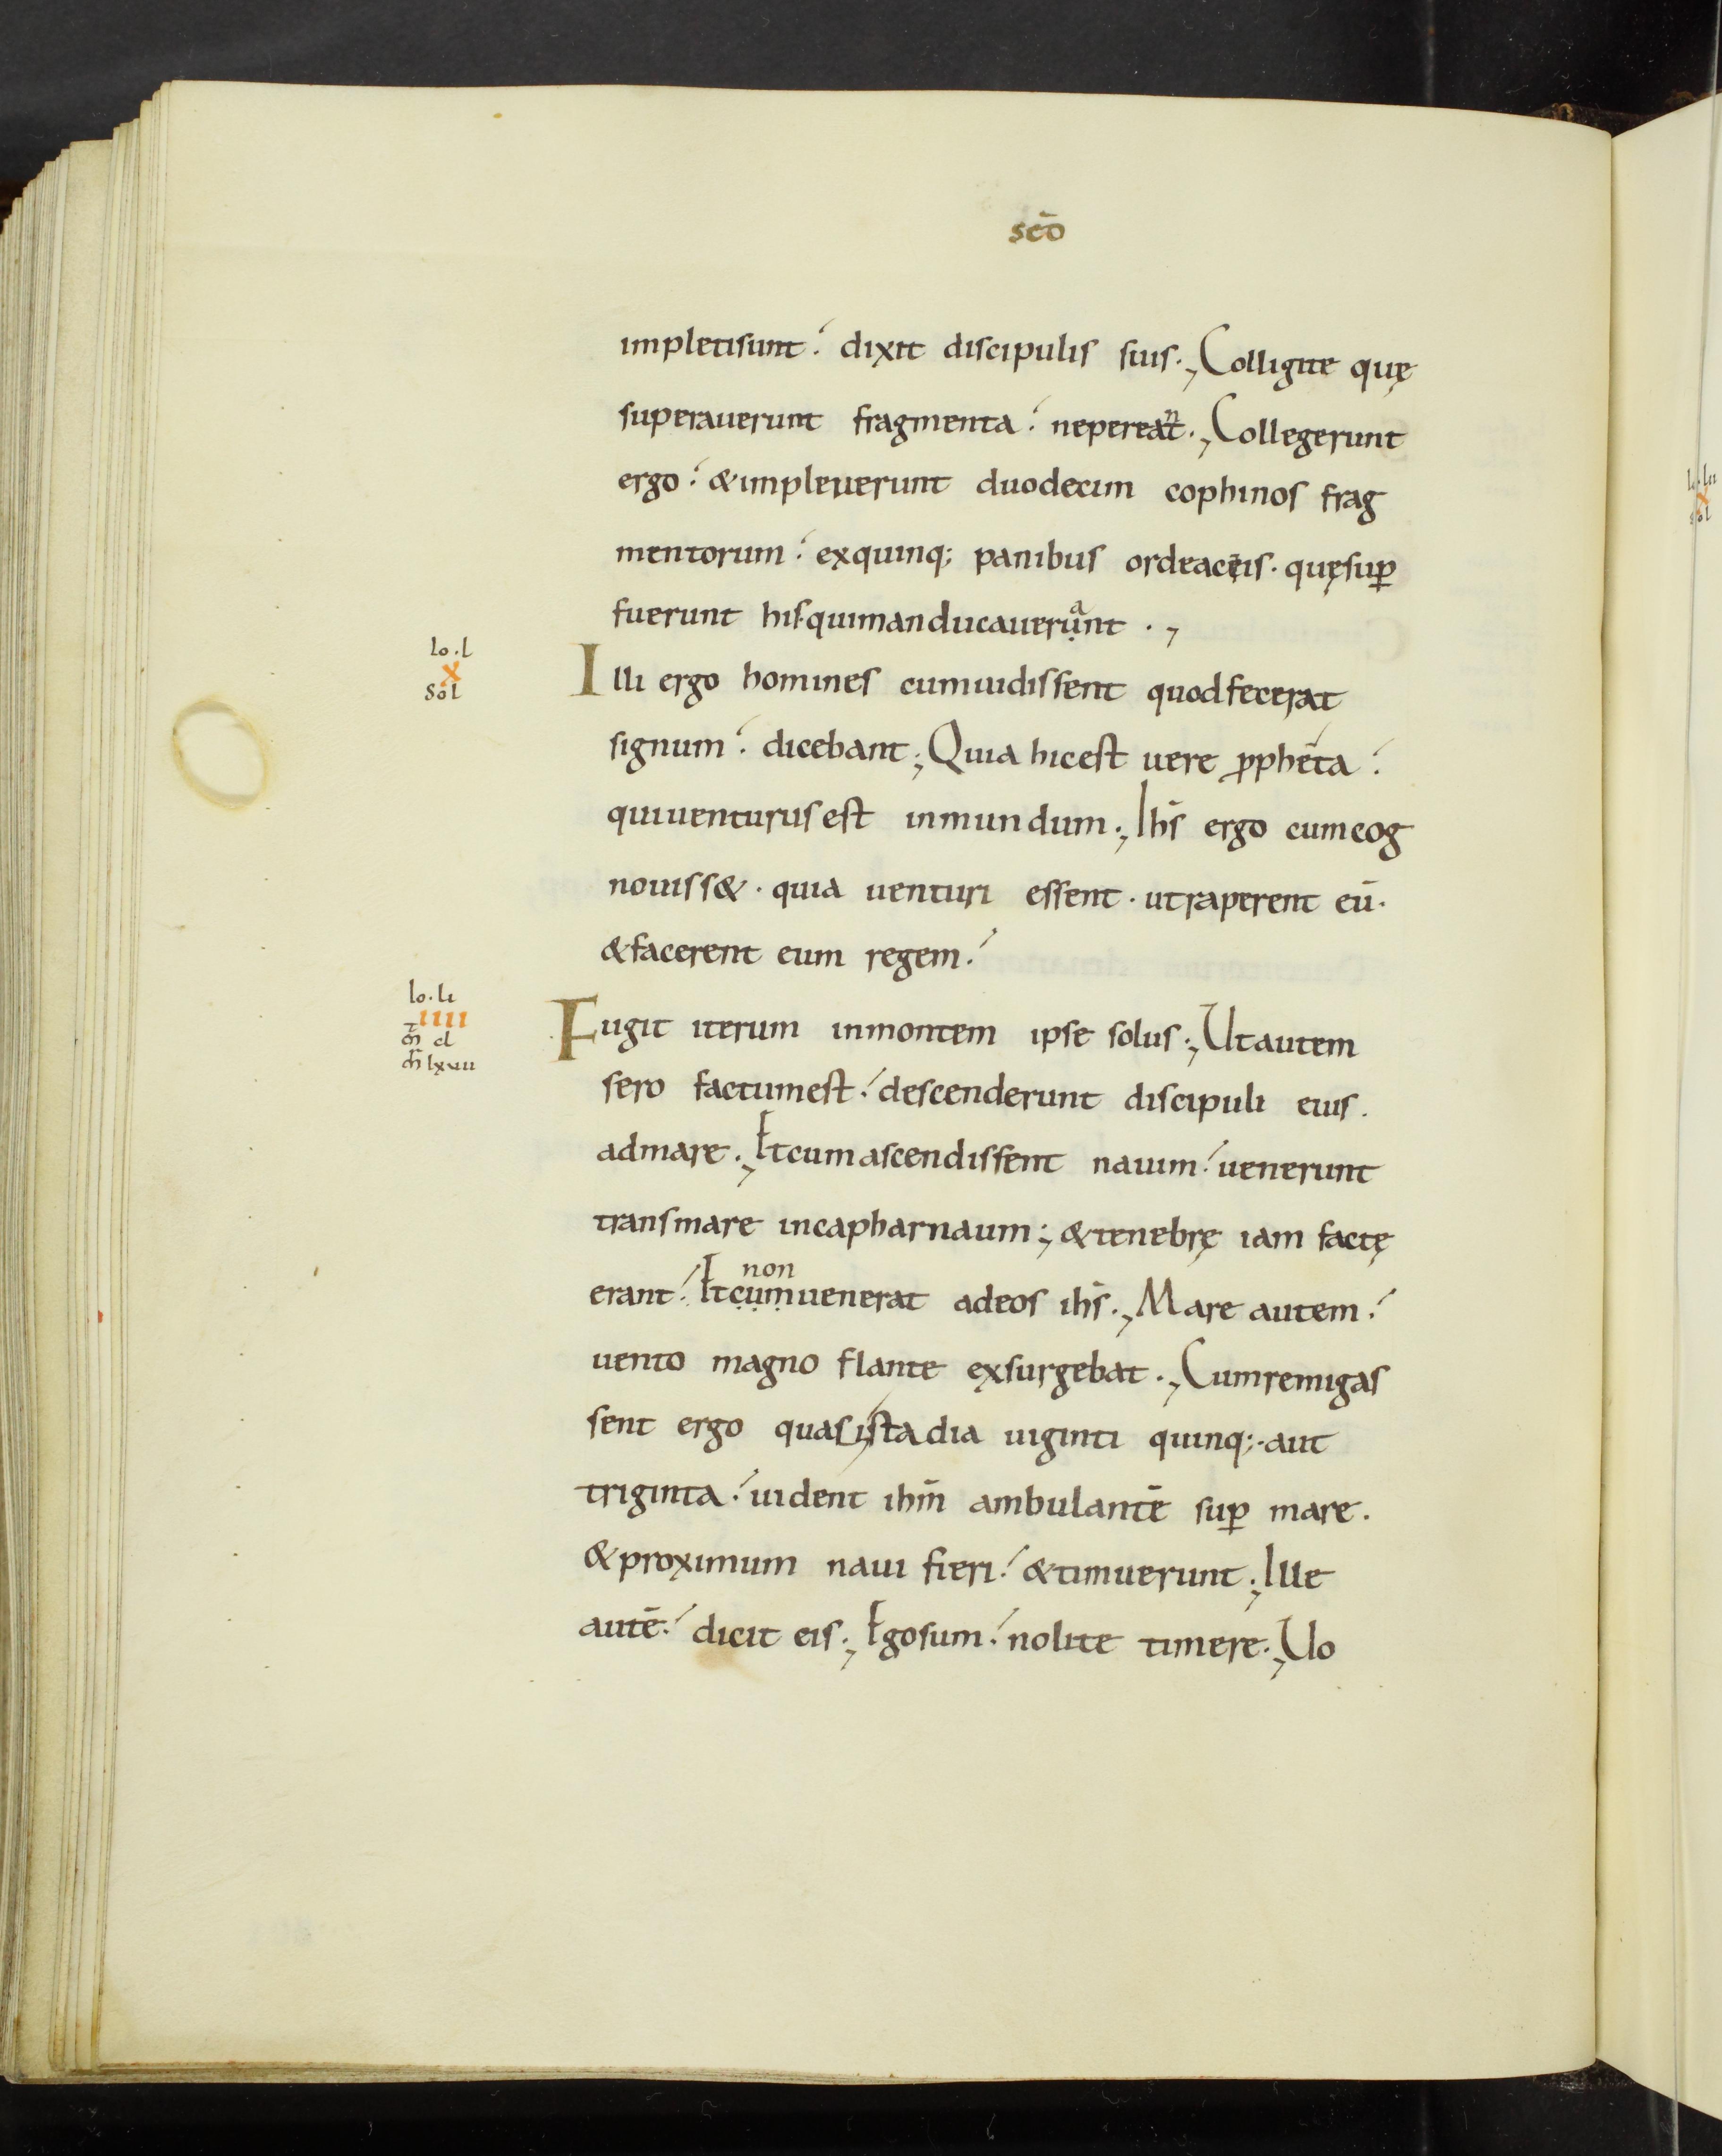 scō
impleti sunt. dixit discipulis suis., Colligite quę
superauerunt fragmenta. ne pereaⁿt., Collegerunt
ergo. & impleuerunt duodecim cophinos frag
mentorum. ex quinq; panibus ordeaceis. quę sup̄
fuerunt his qui manducauerụᵃnt .,
lo.l
X
Sol
Illi ergo homines cum uidissent quod fecerat
signum. dicebant; Quia hic est uere ꝓpheta.
qui uenturus est in mundum; Ihs̄ ergo cum cog
nouiss&. quia uenturi essent. ut raperent eū.
& facerent eum regem.
lo.li
IIII
m̄ cl
m̄ lxuii
Fugit iterum in montem ipse solus; Ut autem
sero factum est. descenderunt discipuli eius.
ad mare., Et cum ascendissent nauim. uenerunt
trans mare in capharnaum; & tenebrę iam factę
non
erant. Et cụṃ uenerat ad eos ihs̄., Mare autem.
uento magno flante exsurgebat., Cum remigas
sent ergo quasi stadia uiginti quinq;. aut
triginta. uident ihm̄ ambulantē sup̄ mare.
& proximum naui fieri. & timuerunt; Ille
autē. dicit eis; Ego sum. nolite timere., Uo
lo.lii
X
sol